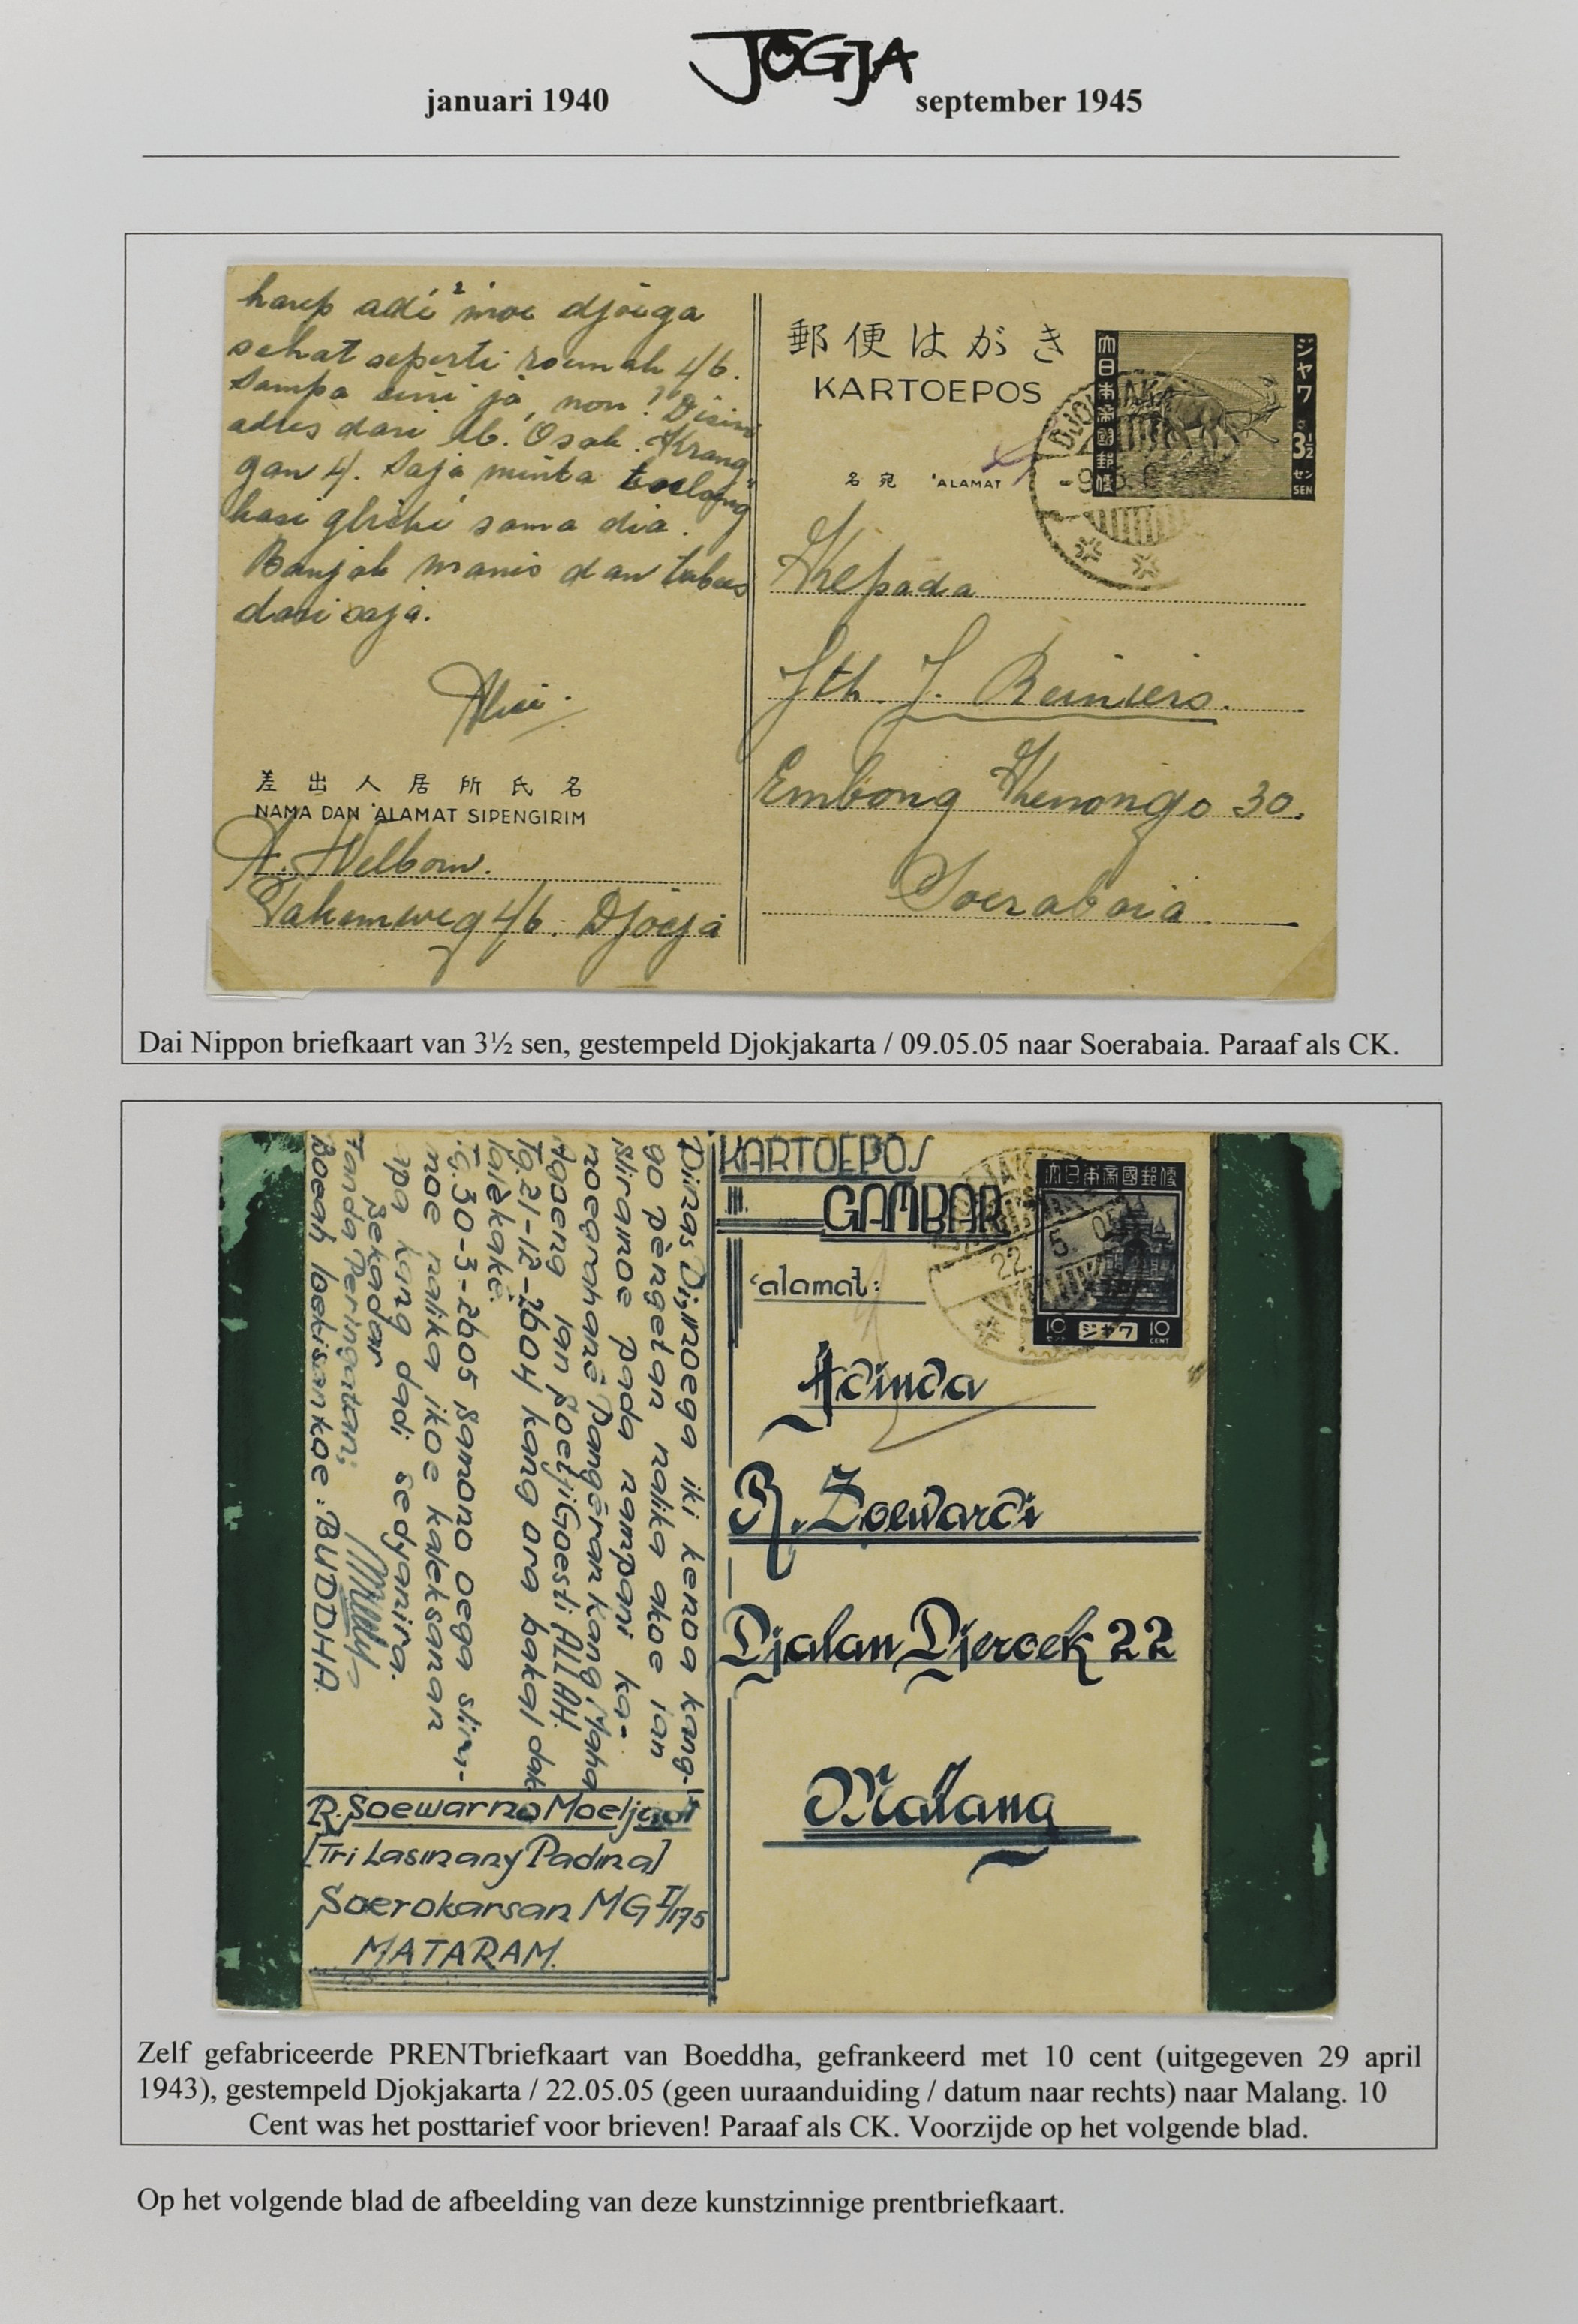 JOGJA
januari 1940 september 1945
harep adi² moe djoega
sehat seperti roemah 46.
Sampa sini ja, non! Disini
adres dari
gan 4. Saja minta toelong
kasi sama dia.
Banjak manis dan
dari saja.
差出人居所氏名
NAMA DAN 'ALAMAT SIPENGIRIM
A. Welborn.
Pakemweg 46. Djocja
郵便はがき
KARTOEPOS
名宛 'ALAMAT
大日本帝國郵便
ジャワ
3½
セン
SEN
Kepada
Jth. J. Reiniers.
Embong Kenongo 30.
Soerabaia
Dai Nippon briefkaart van 3½ sen, gestempeld Djokjakarta / 09.05.05 naar Soerabaia. Paraaf als CK.
KARTOEPOS
GAMBAR
'alamat:
大日本帝國郵便
22. 5. 05
10 ジャワ 10
セント CENT
Adinda
R. Soewardi
Djalan Djeroek 22
Malang
Dinas Djinoega iki kenoa kang-
go pèngetan nalika akoe lan
sliramoe pada nampani ka-
noegrahané Pangéran kang Maha
Agoeng lan Soetji Goesti ALLAH.
Tg. 21-12-2604 kang ora bakal dak
lalèkaké.
Tg. 30-3-2605 Samono oega slira-
moe nalika ikoe kaleksanan
apa kang dadi sedyanira.
Sekadar
Tanda Peringatan;
Boeah loekisankoe: BUDDHA.
R. Soewarno Moeljadi
[Tri Lasmany Padma]
Soerokarsan MG I/175
MATARAM.
Zelf gefabriceerde PRENTbriefkaart van Boeddha, gefrankeerd met 10 cent (uitgegeven 29 april
1943), gestempeld Djokjakarta / 22.05.05 (geen uuraanduiding / datum naar rechts) naar Malang. 10
Cent was het posttarief voor brieven! Paraaf als CK. Voorzijde op het volgende blad.
Op het volgende blad de afbeelding van deze kunstzinnige prentbriefkaart.